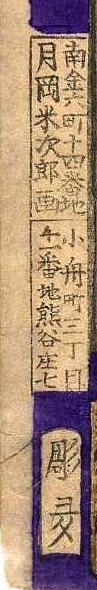 南金六町十四番地
月岡米次郎画
小舟町三丁目
十一番地熊谷庄七
彫